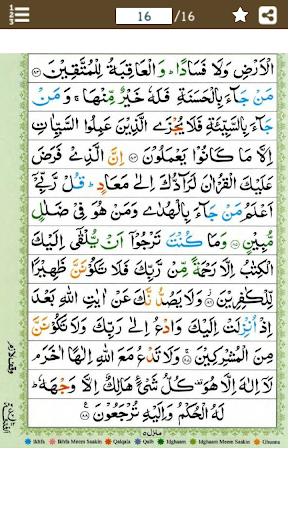 16 /16
الْاَرْضِ وَلَا فَسَادًا ؕ وَالْعَاقِبَةُ لِلْمُتَّقِیْنَ ﴿۸۳﴾
مَنْ جَآءَ بِالْحَسَنَةِ فَلَهٗ خَیْرٌ مِّنْهَا ۚ وَ مَنْ
جَآءَ بِالسَّیِّئَةِ فَلَا یُجْزَی الَّذِیْنَ عَمِلُوا السَّیِّاٰتِ
اِلَّا مَا كَانُوْا یَعْمَلُوْنَ ﴿۸۴﴾ اِنَّ الَّذِیْ فَرَضَ
عَلَیْكَ الْقُرْاٰنَ لَرَآدُّكَ اِلٰی مَعَادٍ ؕ قُلْ رَّبِّیْۤ
اَعْلَمُ مَنْ جَآءَ بِالْهُدٰی وَمَنْ هُوَ فِیْ ضَلٰلٍ
مُّبِیْنٍ ﴿۸۵﴾ وَمَا كُنْتَ تَرْجُوْۤا اَنْ یُّلْقٰۤی اِلَیْكَ
الْكِتٰبُ اِلَّا رَحْمَةً مِّنْ رَّبِّكَ فَلَا تَكُوْنَنَّ ظَهِیْرًا
لِّلْكٰفِرِیْنَ ﴿۸۶﴾ وَلَا یَصُدُّنَّكَ عَنْ اٰیٰتِ اللّٰهِ بَعْدَ
اِذْ اُنْزِلَتْ اِلَیْكَ وَادْعُ اِلٰی رَبِّكَ وَلَا تَكُوْنَنَّ
مِنَ الْمُشْرِكِیْنَ ﴿۸۷﴾ وَلَا تَدْعُ مَعَ اللّٰهِ اِلٰهًا اٰخَرَ ۘ
لَاۤ اِلٰهَ اِلَّا هُوَ ۫ كُلُّ شَیْءٍ هَالِكٌ اِلَّا وَجْهَهٗ ؕ
لَهُ الْحُكْمُ وَاِلَیْهِ تُرْجَعُوْنَ ﴿۸۸﴾
وقف لازم
منزل ۵
Ikhfa Ikhfa Meem Saakin Qalqala Qalb Idghaam Idghaam Meem Saakin Ghunna